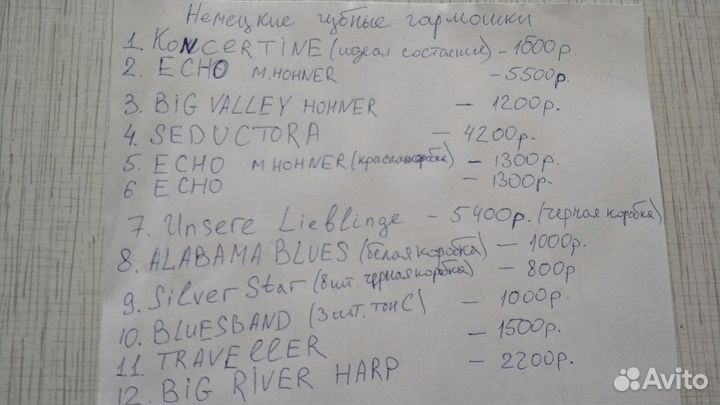 Немецкие губные гармошки
1. KONCERTINE (идеал. состояние) - 1500р.
2. ECHO M.HOHNER - 5500р.
3. BIG VALLEY HOHNER - 1200р.
4. SEDUCTORA - 4200р.
5. ECHO M.HOHNER (красная коробка) - 1300р.
6 ECHO - 1300р.
7. Unsere Lieblinge - 5400р. (черная коробка)
8. ALABAMA BLUES (белая коробка) - 1000р.
9. Silver Star (8шт. черная коробка) - 800р
10. BLUESBAND (3шт. тон C) - 1000р.
11. TRAVELLER - 1500р.
12. BIG RIVER HARP - 2200р.
Avito